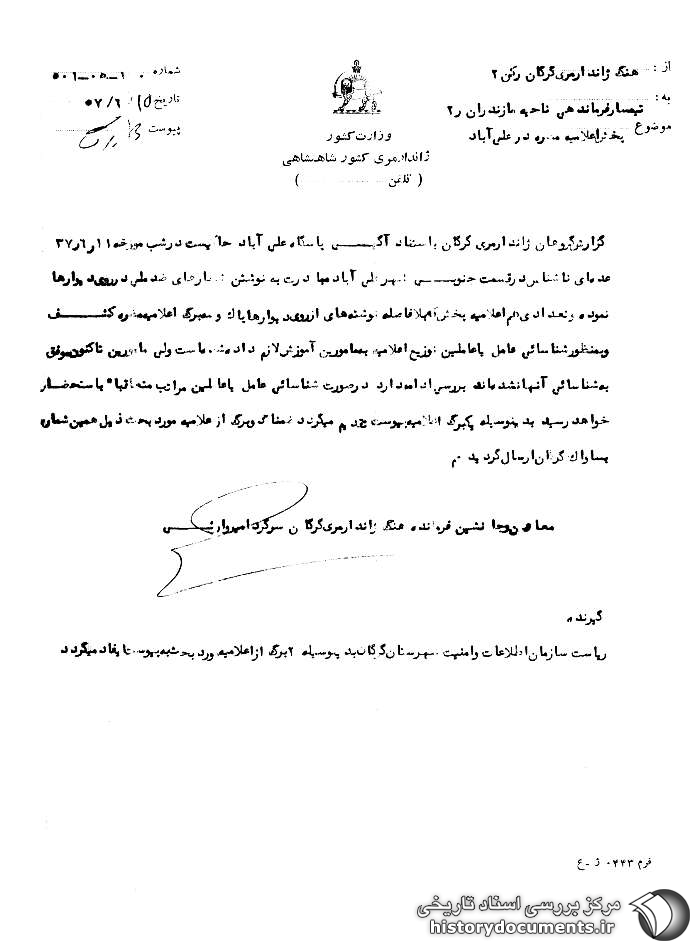 از: هنگ ژاندارمری گرگان رکن ۲
به: تیمسار فرماندهی ناحیه مازندران ر۲
موضوع پخش اعلامیه مضره در علی آباد
وزارت کشور
ژاندارمری کشور شاهنشاهی
شماره ۵۰۱-۰۵-۱۰
تاریخ ۱۵/ ۵۷/۶
پیوست
گزارش گروهان ژاندارمری گرگان باستناد آگهی پاسگاه علی آباد حاکیست در شب مورخه ۱۱ر۶ر۳۷
عده‌ای ناشناس در قسمت جنوبی شهر علی آباد مبادرت به نوشتن شعارهای ضد ملی در روی دیوارها
نموده و تعدادی هم اعلامیه پخش بلافاصله نوشته‌های از روی دیوارها پاک و سه برگ اعلامیه مضره کشف
و بمنظور شناسائی عامل یا عاملین توزیع اعلامیه بمامورین آموزش لازم داده شده است ولی مامورین تاکنون موفق
به شناسائی آنها نشده‌اند بررسی ادامه دارد در صورت شناسائی عامل یا عاملین مراتب متعاقبا" باستحضار
خواهد رسید بدینوسیله یکبرگ اعلامیه بپیوست تقدیم میگردد ضمنا دو برگ از علامیه مورد بحث ذیل همین شماره
بساواک گرگان ارسال گردید م
معاون و جانشین فرمانده هنگ ژاندارمری گرگان سرگرد
گیرنده
ریاست سازمان اطلاعات و امنیت شهرستان گرگان بدینوسیله ۲ برگ از اعلامیه مورد بحث به پیوست ایفاد میگردد
فرم ۰۴۴۳ ژ-ع
مرکز بررسی اسناد تاریخی
historydocuments.ir